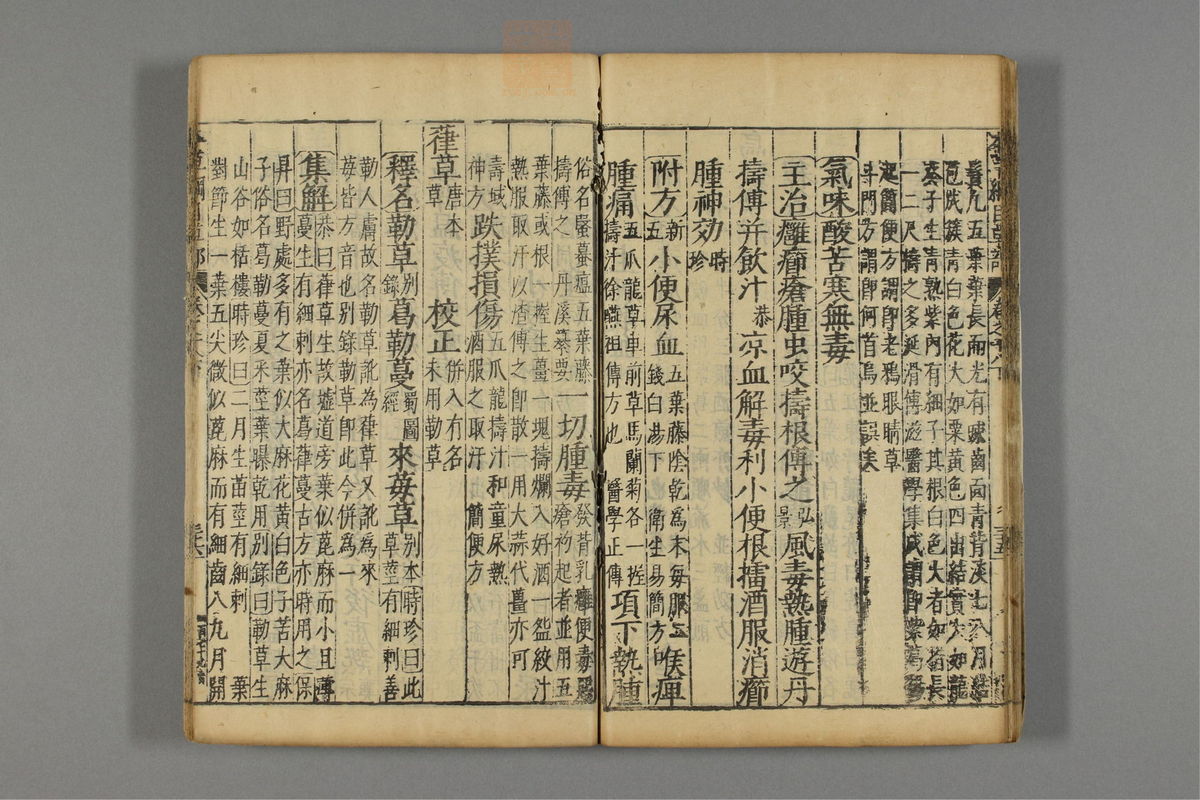 鬚凡五葉葉長而光有疎齒面青背淡七八月結
苞成簇青白色花大如粟黃色四出結實大如龍
葵子生青熟紫內有細子其根白色大者如指長
一二尺擣之多涎滑傅滋醫學集成謂即紫葛楊
起簡便方謂即老鴉眼睛草
斗門方謂即何首烏並誤矣
氣味酸苦寒無毒
主治癰癤瘡腫虫咬擣根傅之弘景風毒熱腫遊丹
擣傅并飲汁恭涼血解毒利小便根擂酒服消癤
腫神効時珍
附方新五小便尿血五葉藤陰乾為末每服二錢白湯下衛生易簡方喉痺
腫痛五爪龍草車前草馬蘭菊各一握擣汁徐嚥祖傳方也醫學正傳項下熱腫
俗名蟇瘟五葉藤擣傅之丹溪纂要一切腫毒發背乳癰便毒惡瘡初起者並用五
葉藤或根一握生薑一塊擣爛入好酒一盌絞汁
熱服取汗以渣傅之即散一用大蒜代薑亦可
壽域神方跌撲損傷五爪龍擣汁和童尿熱酒服之取汗簡便方
葎草唐本草校正併入有名未用勒草
釋名勒草別錄葛勒蔓蜀圖經來莓草別本時珍曰此草莖有細刺善
勒人膚故名勒草訛為葎草又訛為來
莓皆方音也別錄勒草即此今併為一
集解恭曰葎草生故墟道旁葉似蓖麻而小且薄蔓生有細刺亦名葛葎蔓古方亦時用之保
昇曰野處多有之葉似大麻花黃白色子若大麻
子俗名葛勒蔓夏采莖葉曝乾用別錄曰勒草生
山谷如栝樓時珍曰二月生苗莖有細刺葉
對節生一葉五尖微似蓖麻而有細齒八九月開